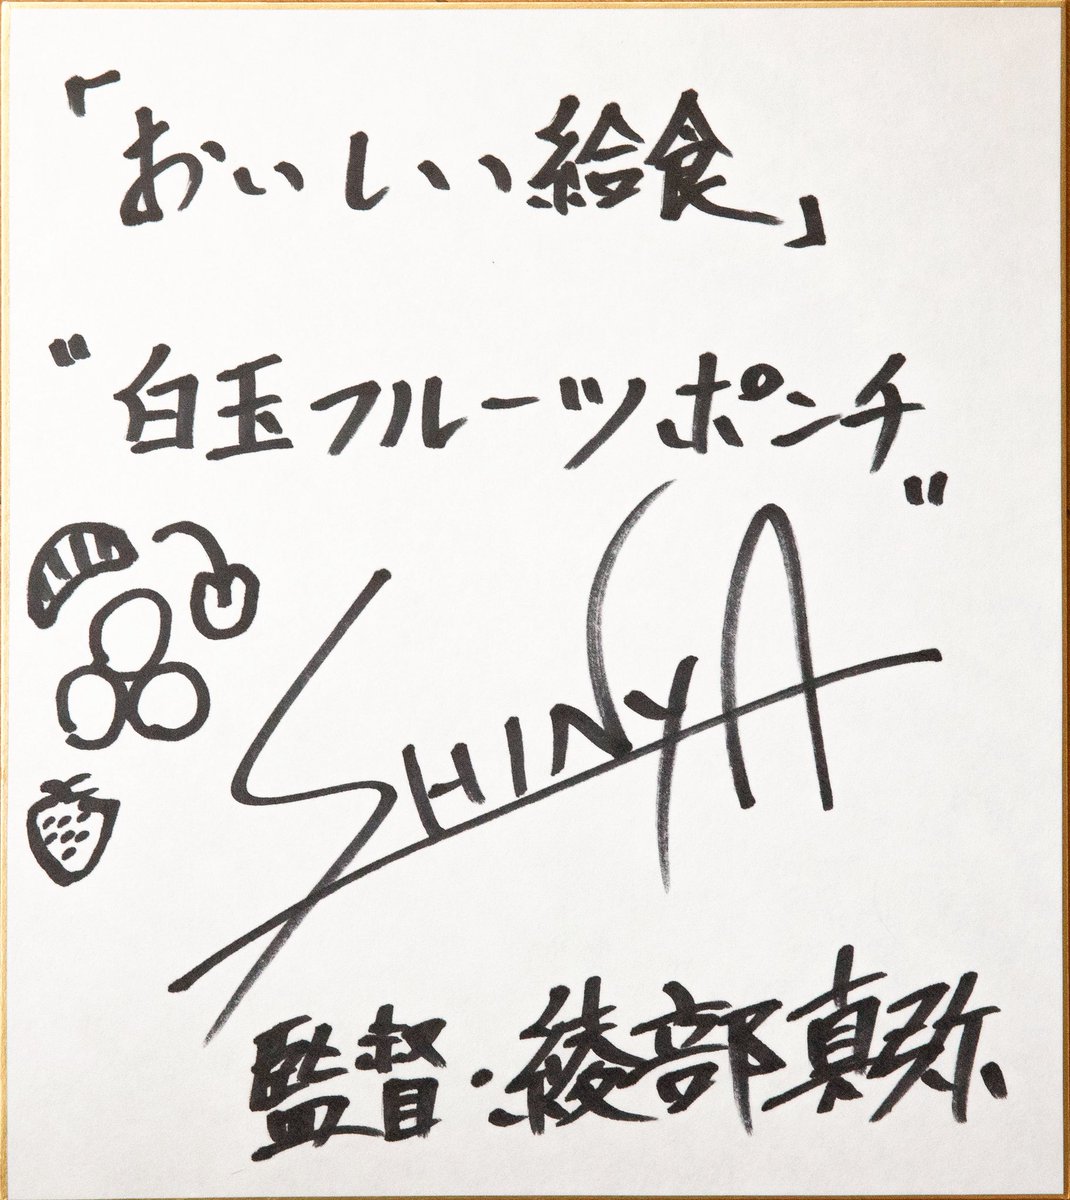 「おいしい給食」
"白玉フルーツポンチ"
SHINYA
監督・綾部真弥